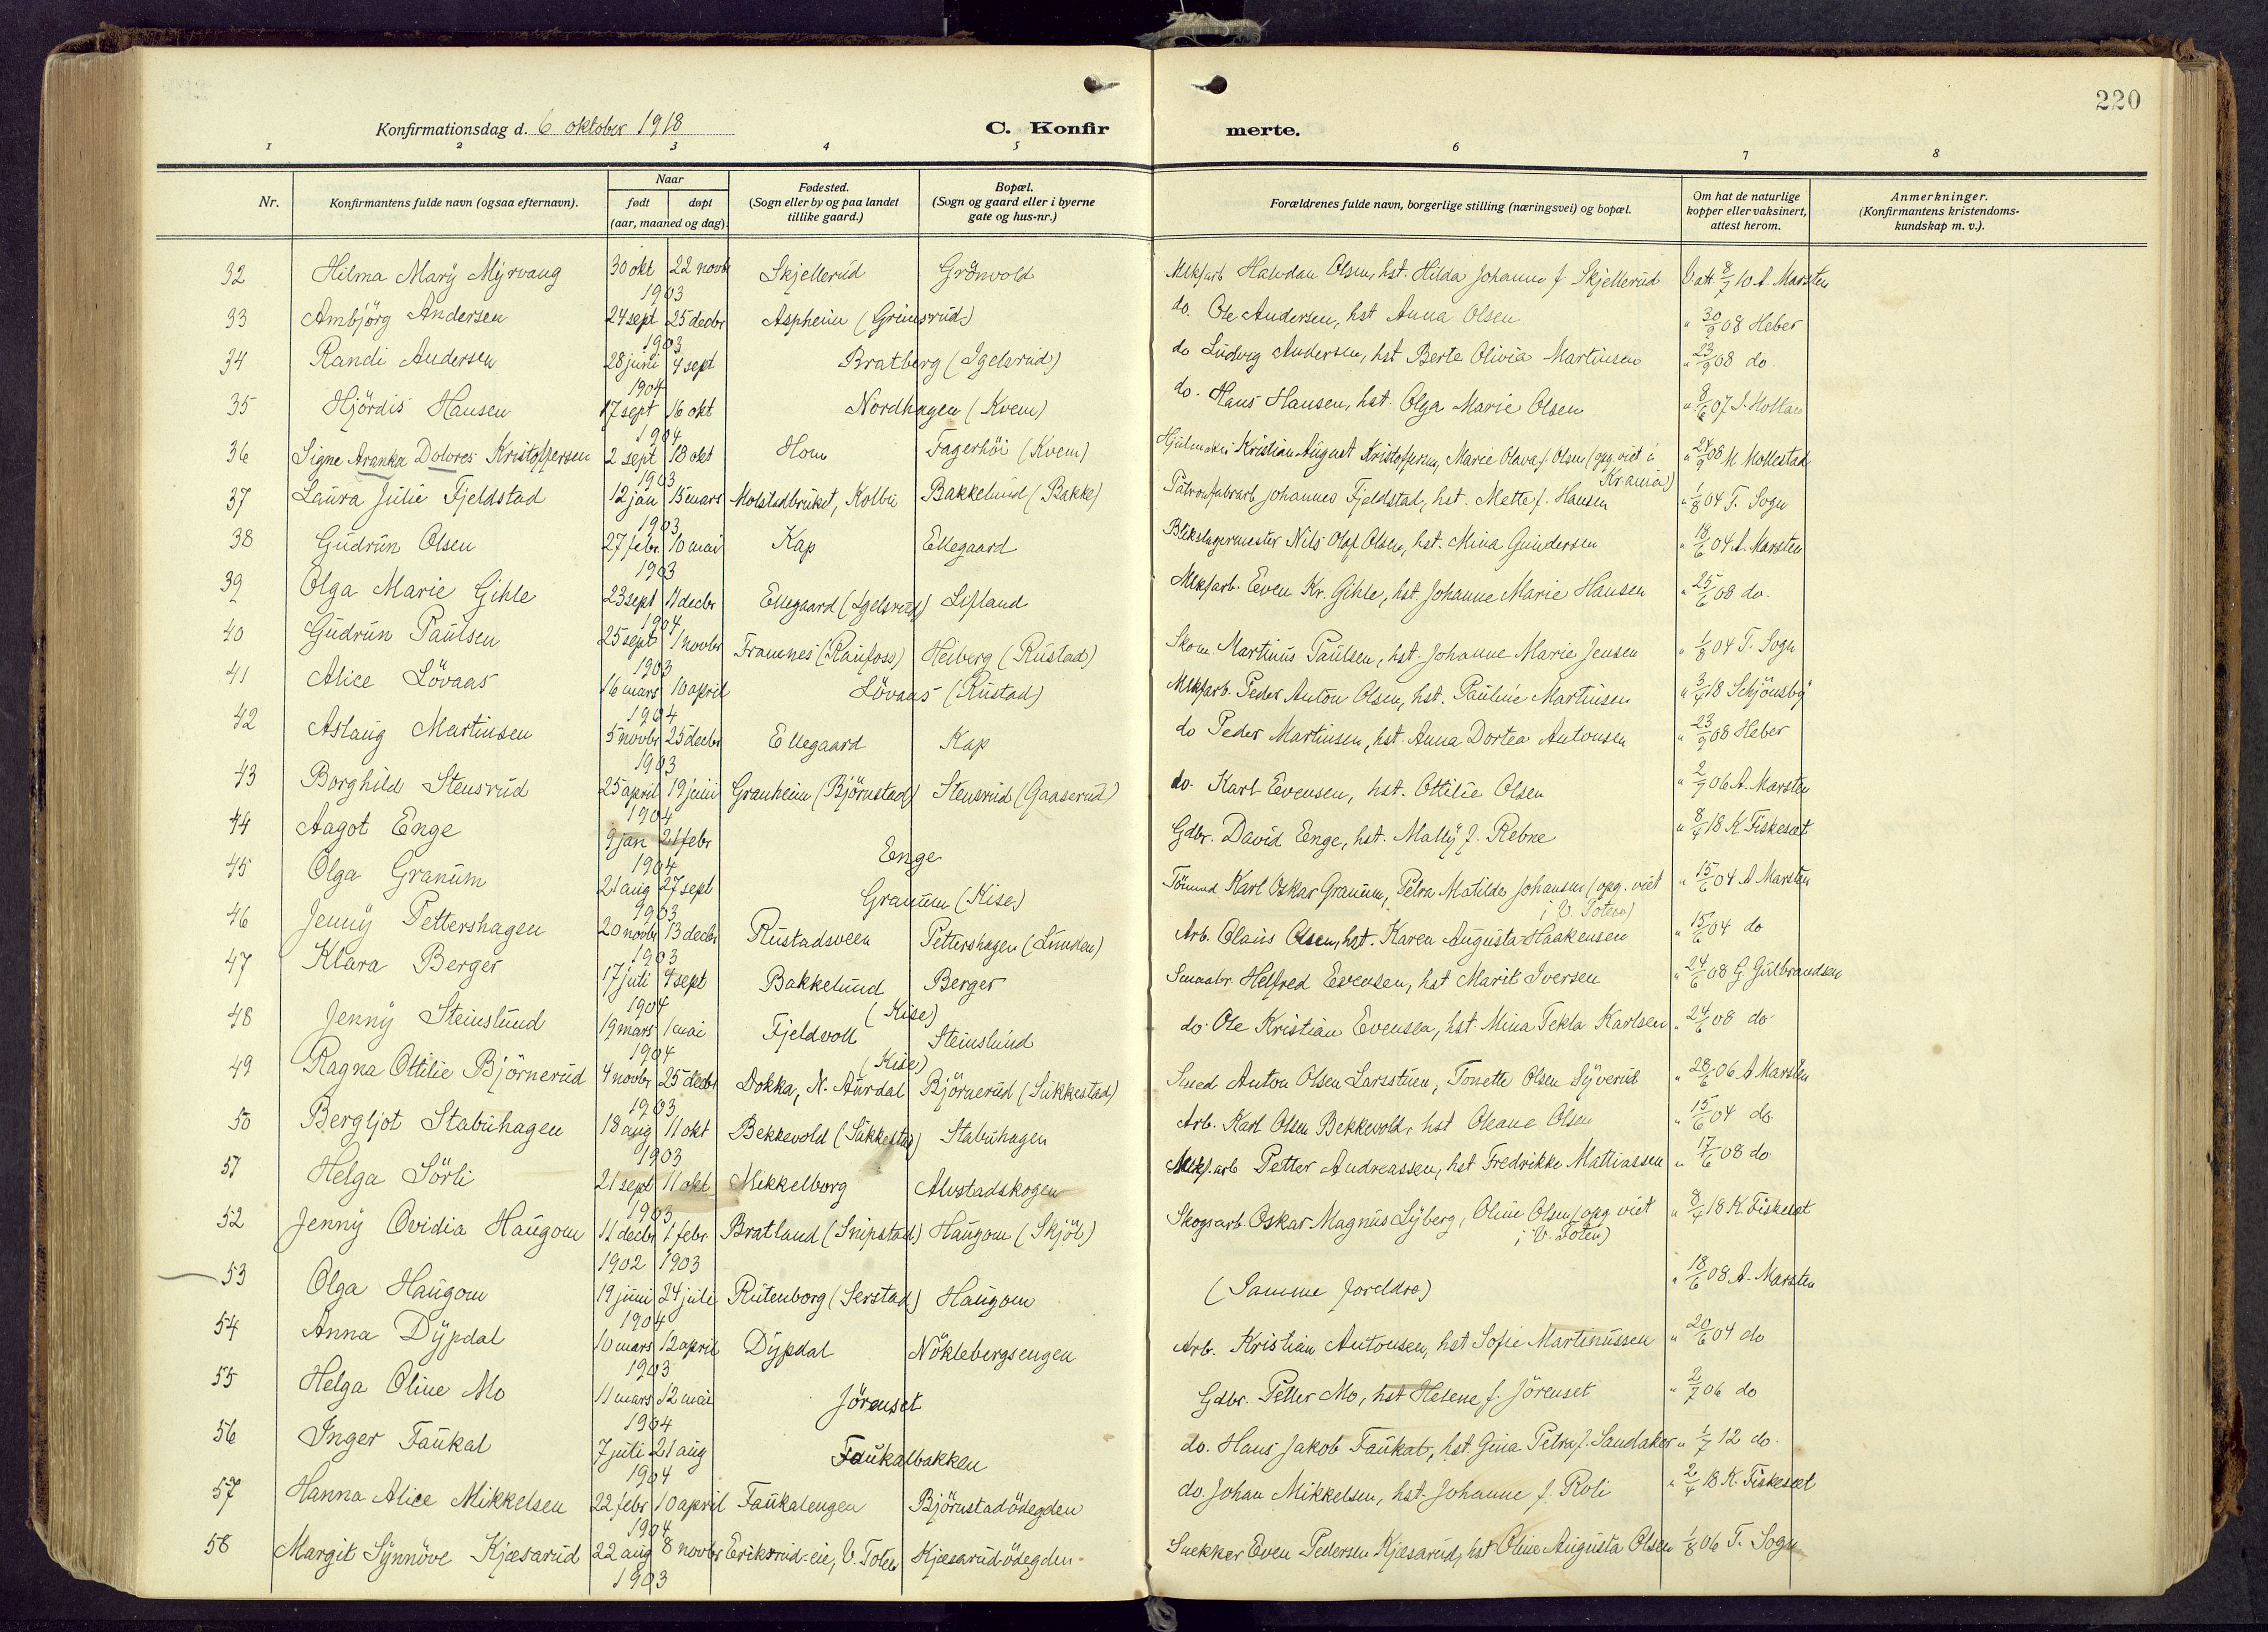 220
Konfirmationsdag d. 6 oktober 1918
C. Konfirmerte.
1 2 3 4 5 6 7 8
Nr.
Konfirmantens fulde navn (ogsaa efternavn).
Naar
født døpt
(aar, maaned og dag).
Fødested.
(Sogn eller by og paa landet
tillike gaard.)
Bopæl.
(Sogn og gaard eller i byerne
gate og hus-nr.)
Forældrenes fulde navn, borgerlige stilling (næringsvei) og bopæl.
Om hat de naturlige
kopper eller vaksinert,
attest herom.
Anmerkninger.
(Konfirmantens kristendoms-
kundskap m. v.).
32 Hilma Mary Myrvang 30 okt 22 novbr Skjellerud Grönvold Mekfarb Halvdan Olsen, hst. Hilda Johanne f. Skjellerud V att 8/7 10 A. Marsten
1903
33 Ambjörg Andersen 24 sept 25 decbr Aspheim (Grimsrud) do. Ole Andersen, hst Anna Olsen " 30/9 08 Heber
1903
34 Randi Andersen 28 juni 4 sept Bratberg (Igelsrud) do Ludvig Andersen, hst Berte Olivia Martinsen " 23/9 08 do.
1904
35 Hjördis Hansen 17 sept 16 okt Nordhagen (Kvem) do. Hans Hansen, hst. Olga Marie Olsen " 8/6 07 S. Hollan
1904
36 Signe Aranka Dolores Kristoffersen 2 sept 18 okt Hom Fagerhöi (Kvem) Kristian August Kristoffersen, Marie Olava f Olsen (opg. viet i " 24/9 08 M Mollestad
1903 Krania)
37 Laura Julie Fjeldstad 12 jan 15 mars Molstadbruket, Kolbu Bakkelund (Bakke) Patronfabrarb Johannes Fjeldstad, hst. Mette f. Hansen " 1/8 04 T. Sogn
1903
38 Gudrun Olsen 27 febr. 10 mai Kap Ellegaard Blikslagermester Nils Olaf Olsen, hst. Mina Gundersen " 18/6 04 A. Marsten
1903
39 Olga Marie Gihle 23 sept 11 decbr Ellegaard (Igelsrud) Lifland Mekfarb. Even Kr. Gihle, hst. Johanne Marie Hansen " 25/6 08 do.
1904
40 Gudrun Paulsen 25 sept 1 novbr Framnes (Raufoss) Heiberg (Rustad) Skom. Martinus Paulsen, hst. Johanne Marie Jensen " 1/8 04 T. Sogn
1903
41 Alice Lövaas 16 mars 10 april Lövaas (Rustad) Mekfarb. Peder Anton Olsen, hst. Pauline Martinsen " 3/4 18 Schjönsby
1904
42 Aslaug Martinsen 5 novbr 25 decbr Ellegaard Kap do Peder Martinsen, hst. Anna Dortea Antonsen " 23/9 08 Heber
1903
43 Borghild Stensrud 25 april 19 juni Granheim (Björnstad) Stensrud (Gaaserud) do. Karl Evensen, hst. Ottilie Olsen " 2/7 06 A. Marsten
1904
44 Aagot Enge 9 jan 21 febr Enge Gdbr. David Enge, hst. Mally f. Rebne " 8/4 18 K Fiskeset
1904
45 Olga Granum 21 aug 27 sept Granum (Kise) Tömmd Karl Oskar Granum, Petra Matilde Johansen (opg. viet " 15/6 04 A Marsten
1903 i V. Toten)
46 Jenny Pettershagen 20 novbr 13 decbr Rustadsveen Pettershagen (Linden) Arb. Olaus Olsen, hst. Karen Augusta Haakensen " 15/6 04 do
1903
47 Klara Berger 17 juli 4 sept Bakkelund Berger Smaabr. Helfred Evensen, hst Marit Iversen " 24/6 08 G. Gulbrandsen
1904 (Kise)
48 Jenny Steinslund 19 mars 1 mai Fjeldvoll Steinslund do. Ole Kristian Evensen, hst. Mina Tekla Karlsen " 24/6 08 do
1904 (Kise)
49 Ragna Ottilie Björnerud 4 novbr 25 decbr Dokka, N. Aurdal Björnerud (Sukkestad) Smed Anton Olsen Larsstuen, Tonette Olsen Syverud " 28/6 06 A Marsten
1903
50 Bergljot Stabuhagen 18 aug 11 okt Bekkevold (Sukkestad) Stabuhagen Arb. Karl Olsen Bekkevold, hst Oleane Olsen " 15/6 04 do.
1903
51 Helga Sörli 21 sept 11 okt Mikkelborg Alvstadskogen Mekf.arb Petter Andreassen, hst Fredrikke Mattiassen " 17/6 08 do.
1903
52 Jenny Ovidia Haugom 11 decbr 1 febr. Bratland (Snipstad) Haugom (Skjöl) Skogsarb. Oskar Magnus Lyberg, Oline Olsen (opg viet " 8/4 18 K. Fiskeset
1902 1903 i V. Toten)
53 Olga Haugom 19 juni 24 juli Rutenborg (Serstad) Haugom (Samme foreldre) " 18/6 08 A. Marsten
1904
54 Anna Dypdal 10 mars 12 april Dypdal Nöklebergsengen Arb. Kristian Antonsen, hst Sofie Martinussen " 20/6 04 do
1903
55 Helga Oline Mo 11 mars 12 mai Jörenset Gdbr. Petter Mo, hst Helene f. Jörenset " 2/7 06 do
1904
56 Inger Faukal 7 juli 21 aug Faukalbakken do. Hans Jakob Faukal, hst. Gina Petra f. Sandaker " 1/7 12 do.
1904
57 Hanna Alice Mikkelsen 22 febr 10 april Faukalengen Björnstadödegden do Johan Mikkelsen, hst. Johanne f. Roli " 2/4 18 K. Fiskeset
1904
58 Margit Synnöve Kjæsarud 22 aug 8 novbr Eriksrud-eie, V. Toten Kjæsarudödegden Snekker Even Pedersen Kjæsarud, hst Oline Augusta Olsen 1/8 06 T. Sogn
1903